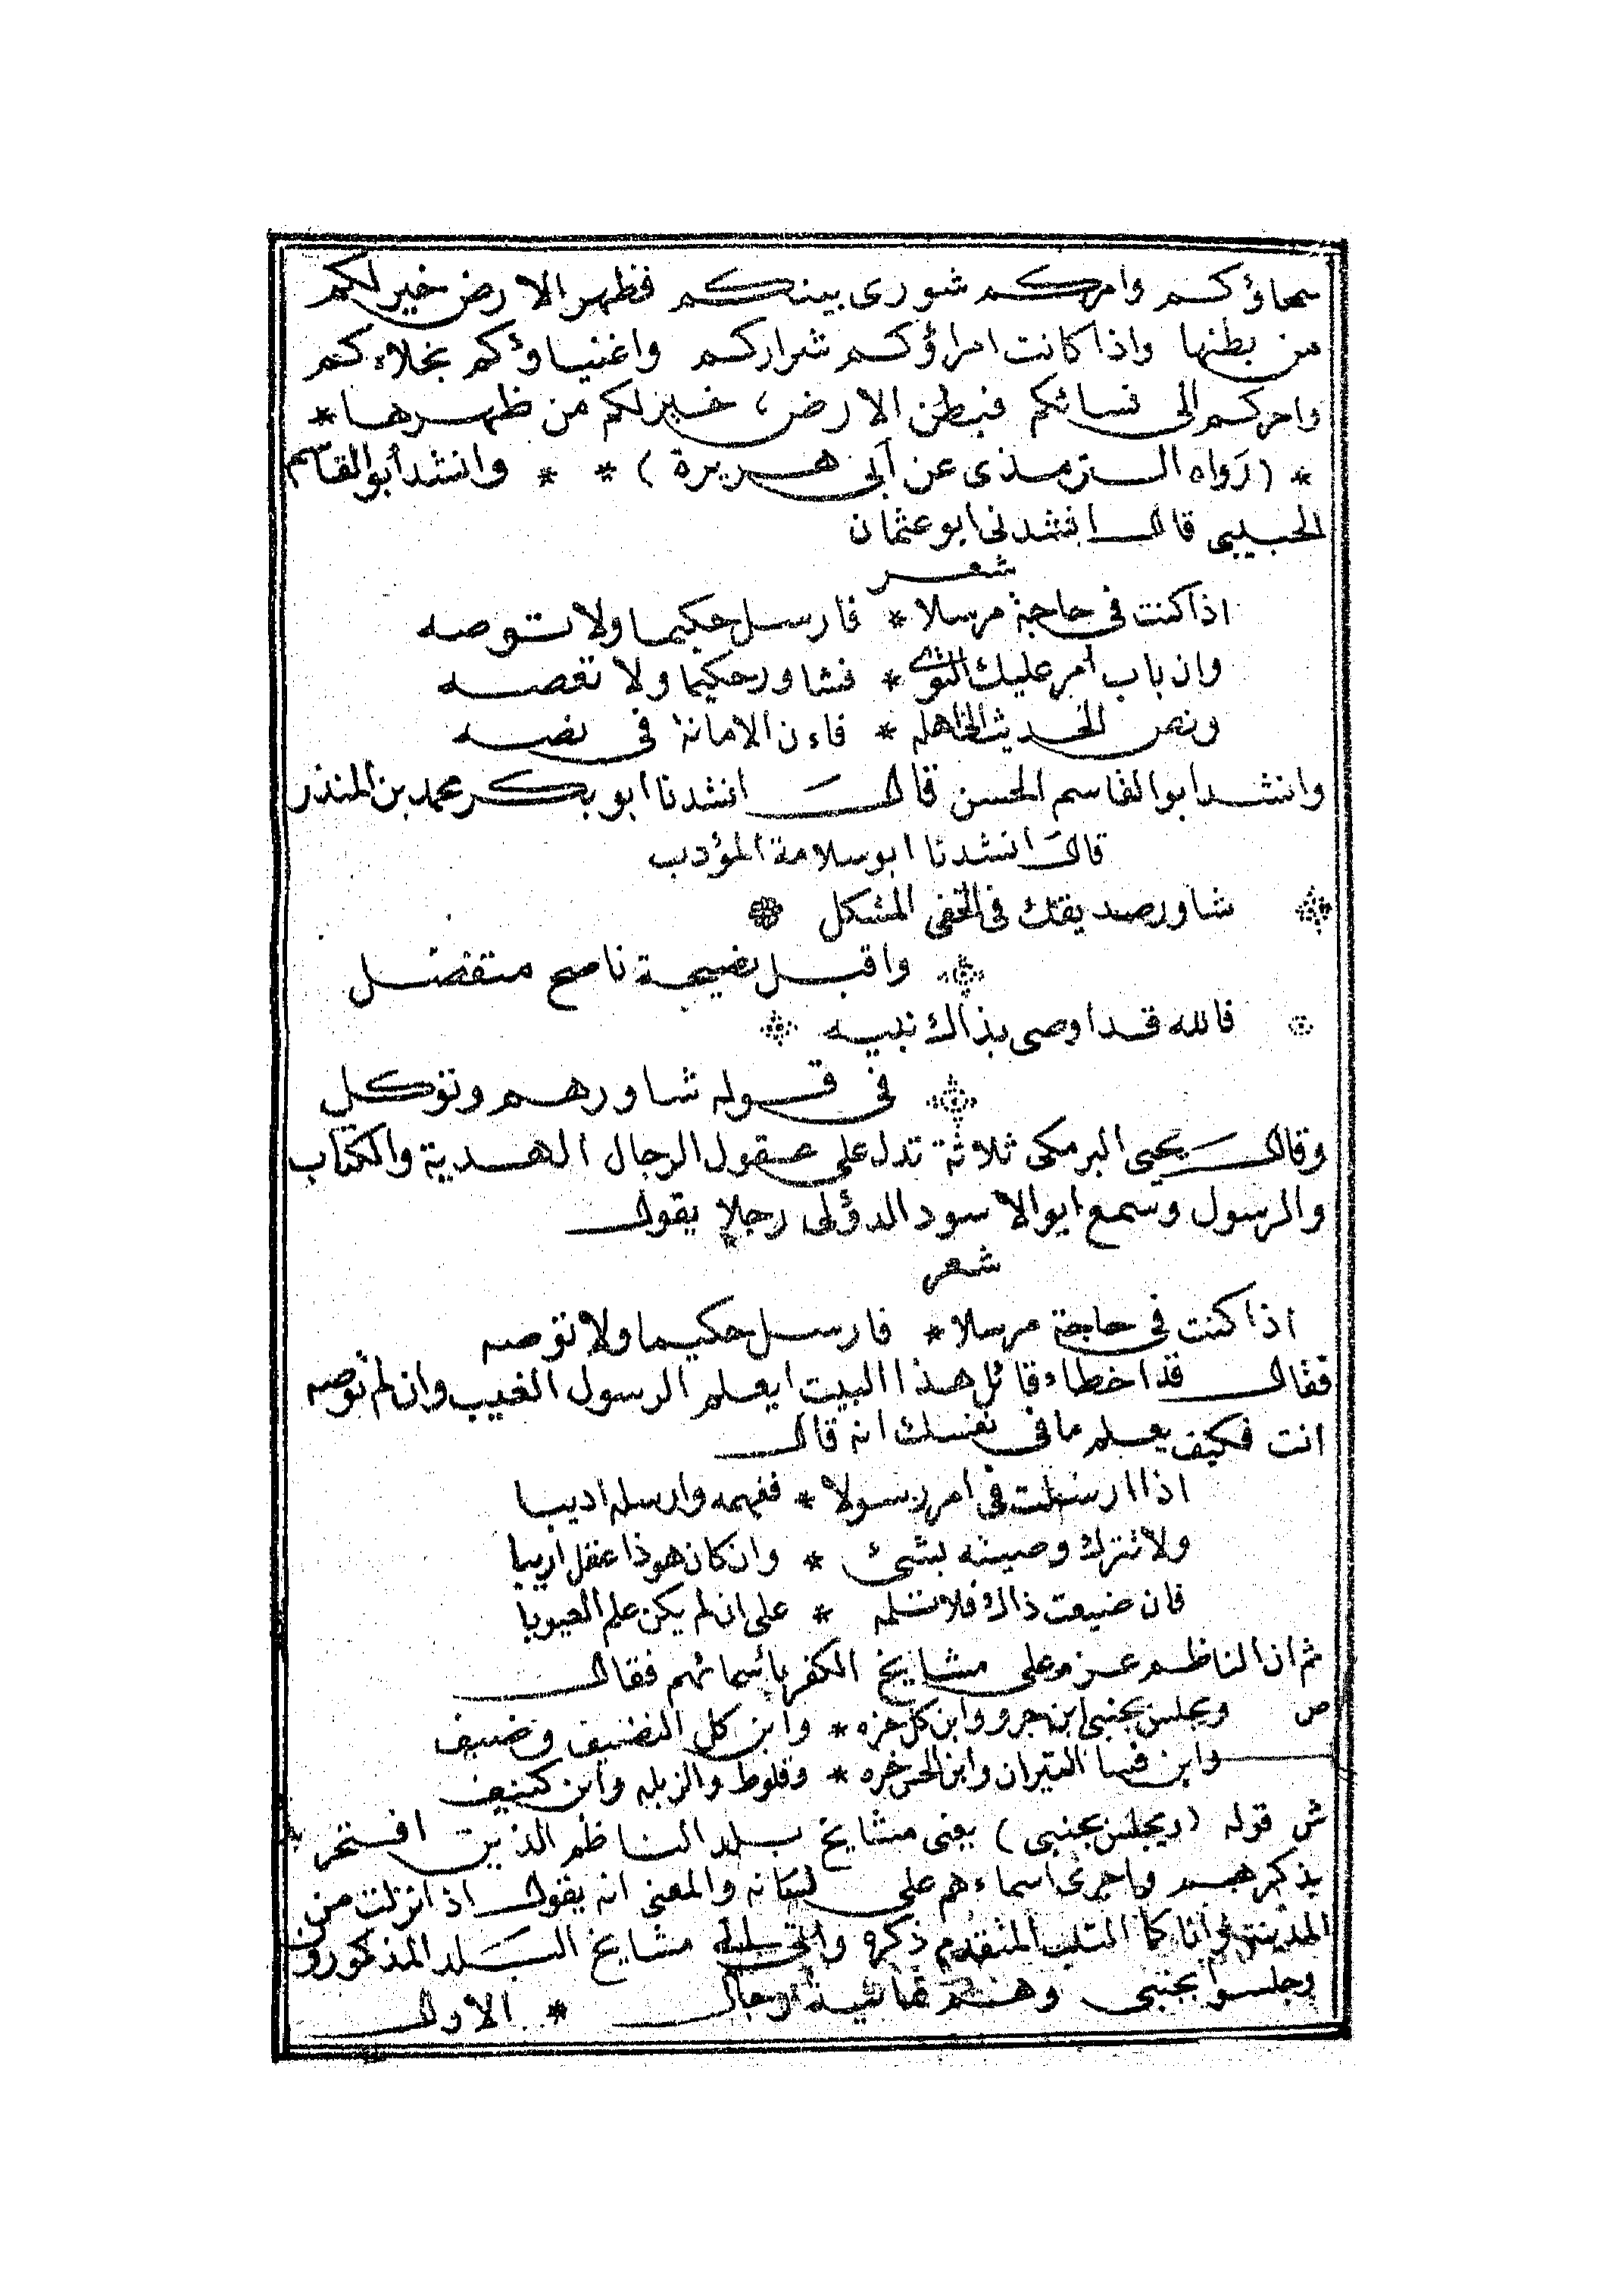 سمحاؤكم وامركم شورى بينكم فظهر الارض خير لكم
من بطنها واذا كانت امراؤكم شراركم واغنياؤكم بخلاءكم
وامركم الى نسائكم فبطن الارض، خير لكم من ظهرها *
* (رَواه الترمذى عن أبى هريرة) * * وانشد أبو القاسم
الحبيبى قال انشدنى ابو عثمان
شعر
اذا كنت فى حاجة مرسلا * فارسل حكيما ولا توصه
وان باب أمر عليك التوى * فشاور حكيما ولا تعصه
ونص الحديث الى اهله * فاءن الامانة فى نصه
وانشد ابو القاسم الحسن قالَ انشدنا ابو بكر محمد بن المنذر
قالَ انشدنا ابو سلامة المؤدب
شاور صديقك فى الخفى المشكل
واقبل نصيحة ناصح متفضل
فالله قد اوصى بذاك نبيه
فى قوله شاورهم وتوكل
وقالَ يحيى البرمكى ثلاثة تدل على عقول الرجال الهدية والكتاب
والرسول وسمع ابو الاسود الدؤلى رجلا يقول
شعر
اذا كنت فى حاجة مرسلا * فارسل حكيما ولا توصه
فقال قد اخطاء قائل هذا البيت ايعلم الرسول الغيب وان لم توصه
انت فكيف يعلم ما فى نفسك انه قال
اذا ارسلت فى امر رسولا * ففهمه وارسله اديبا
ولا تترك وصيته بشئ * وان كان هو ذا عقل اريبا
فان ضيعت ذاك فلا تلمه * على ان لم يكن علم الغيوبا
ثم ان الناظم عزم على مشايخ الكفر بأسمائهم فقال
ص ويجلس بجنبى ابن جرو وابن كل خره * وابن كل النضيف وضيف
وابن فسا التيران وابن الحس خره * وقلوط والزبله وابن كنيف
ش قوله (ويجلس بجنبى) يعنى مشايخ بلد الناظم الذين افتخر
بذكرهم واجرى اسماءهم على لسانه والمعنى انه يقول اذا نزلت من
المدينة وانا كما الكلب المتقدم ذكره مشايخ البلد المذكورون
وجلسوا بجنبى وهم ثمانية رجال * الاول